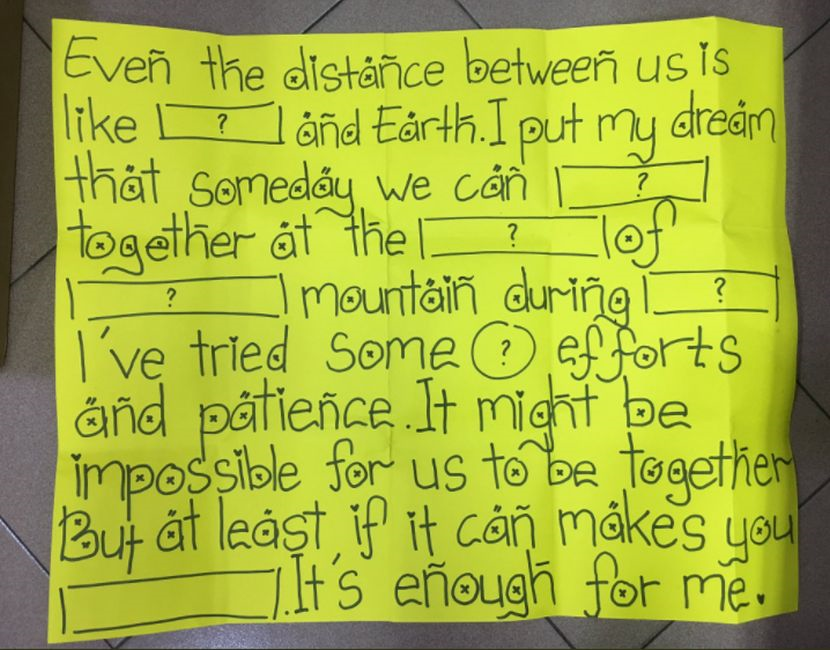 Even the distance between us is
like ? and Earth. I put my dream
that someday we can ?
together at the ? of
? mountain during ?
I've tried some ? efforts
and patience. It might be
impossible for us to be together
But at least if it can makes you
. It's enough for me.